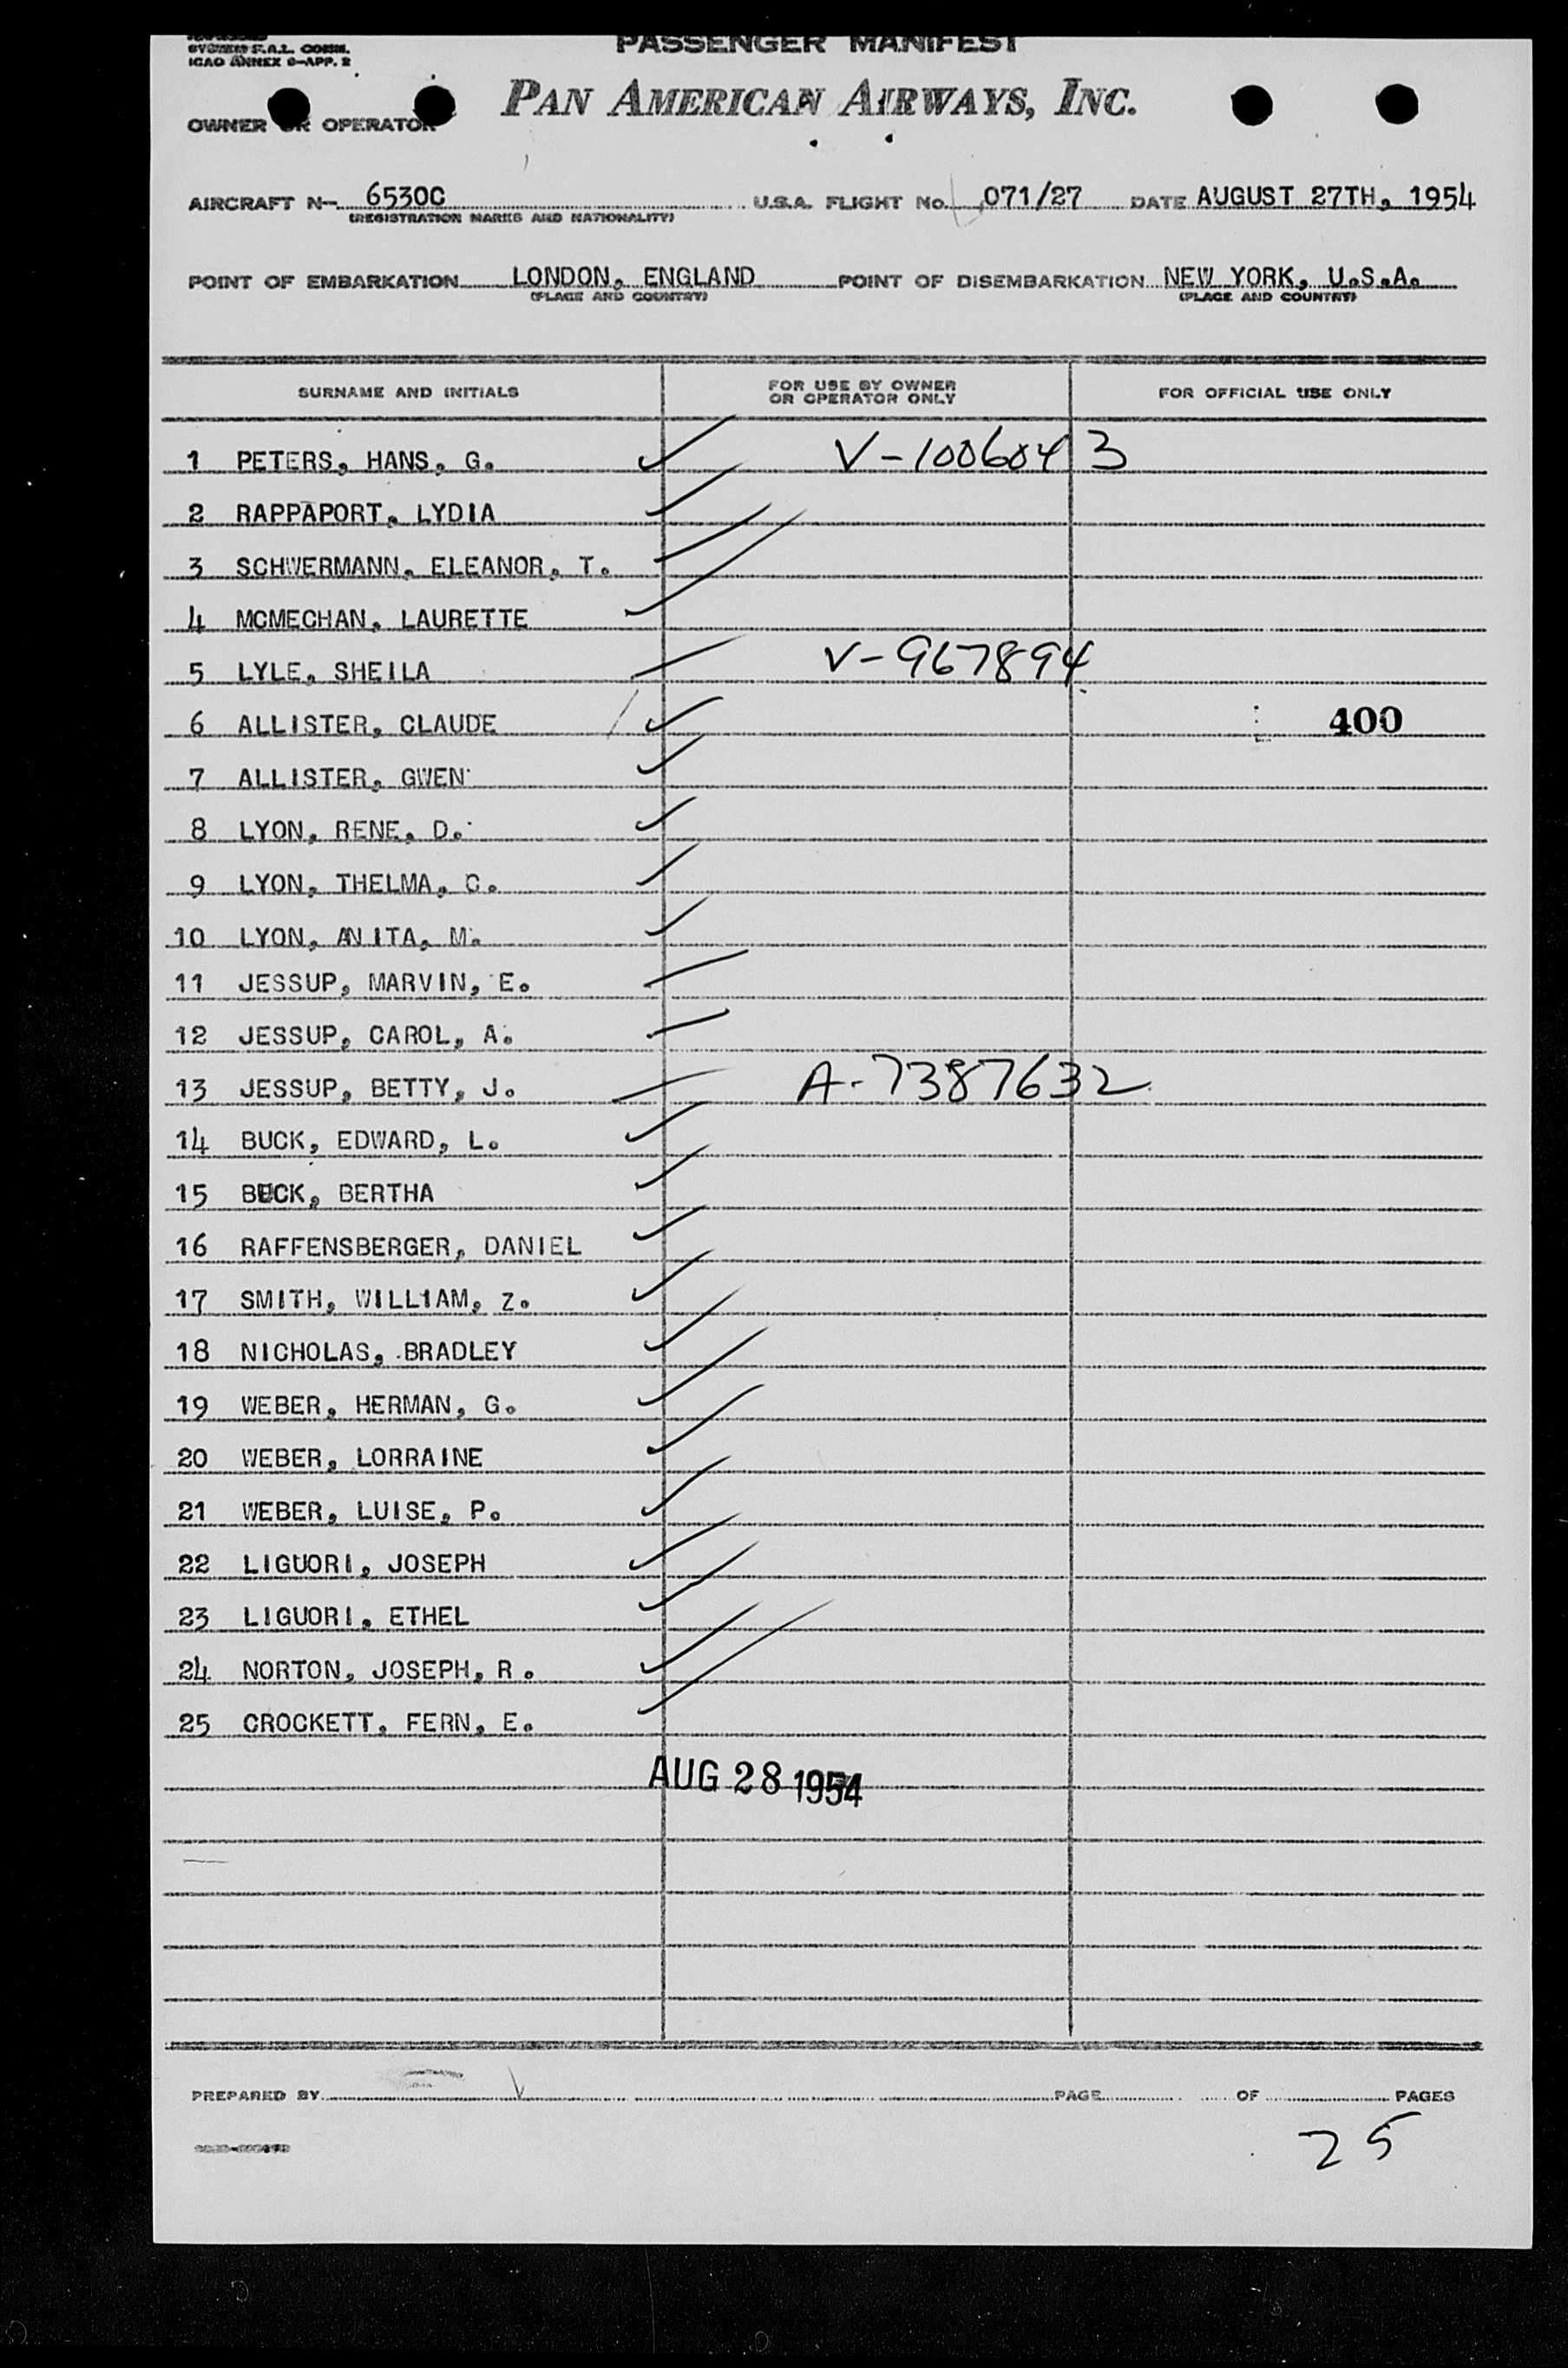 SYSTEM F.A.L. COMM.
ICAO ANNEX 9-APP. 2
PASSENGER MANIFEST
PAN AMERICAN AIRWAYS, INC.
OWNER OR OPERATOR
AIRCRAFT N- 6530C U.S.A. FLIGHT No. 071/27 DATE AUGUST 27TH, 1954
(REGISTRATION MARKS AND NATIONALITY)
POINT OF EMBARKATION LONDON, ENGLAND POINT OF DISEMBARKATION NEW YORK, U.S.A.
(PLACE AND COUNTRY) (PLACE AND COUNTRY)
SURNAME AND INITIALS FOR USE BY OWNER OR OPERATOR ONLY FOR OFFICIAL USE ONLY
1 PETERS, HANS, G. V-1006043
2 RAPPAPORT, LYDIA
3 SCHWERMANN, ELEANOR, T.
4 MCMECHAN, LAURETTE
5 LYLE, SHEILA V-967894
6 ALLISTER, CLAUDE 400
7 ALLISTER, GWEN
8 LYON, RENE, D.
9 LYON, THELMA, C.
10 LYON, ANITA, M.
11 JESSUP, MARVIN, E.
12 JESSUP, CAROL, A.
13 JESSUP, BETTY, J. A-7387632
14 BUCK, EDWARD, L.
15 BUCK, BERTHA
16 RAFFENSBERGER, DANIEL
17 SMITH, WILLIAM, Z.
18 NICHOLAS, BRADLEY
19 WEBER, HERMAN, G.
20 WEBER, LORRAINE
21 WEBER, LUISE, P.
22 LIGUORI, JOSEPH
23 LIGUORI, ETHEL
24 NORTON, JOSEPH, R.
25 CROCKETT, FERN, E.
AUG 28 1954
PREPARED BY PAGE OF PAGES
25